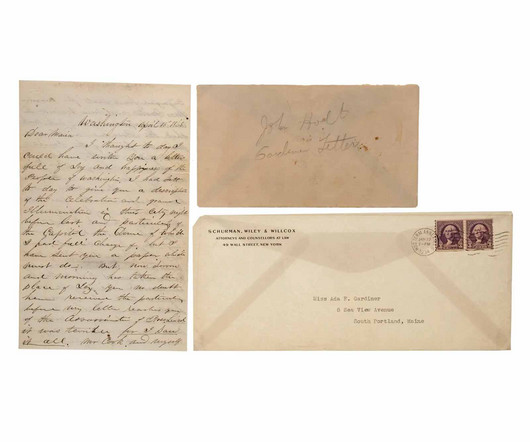 Washington April 15th
Dear Marie
I thought to day I
could have written you a letter
full of Joy and happiness of the
People of Washington. I had sat
to day to give you a description
of the Celebration and grand
Illumination in this City night
before last & particularly of
the Capitol the Dome of which
I had full charge of, but I
have sent you a paper which
must do. But, now
and mourning has taken the
place of Joy, you no doubt
have received the particulars
before my letter reaches you
of the Assassination of
it was terrible for I saw
it all. Mr and myself
John
Gardiner Letters
SCHURMAN, WILEY & WILLCOX
ATTORNEYS AND COUNSELLORS AT LAW
49 WALL STREET, NEW YORK
Miss Ada F. Gardiner
8 Sea View Avenue
South Portland, Maine